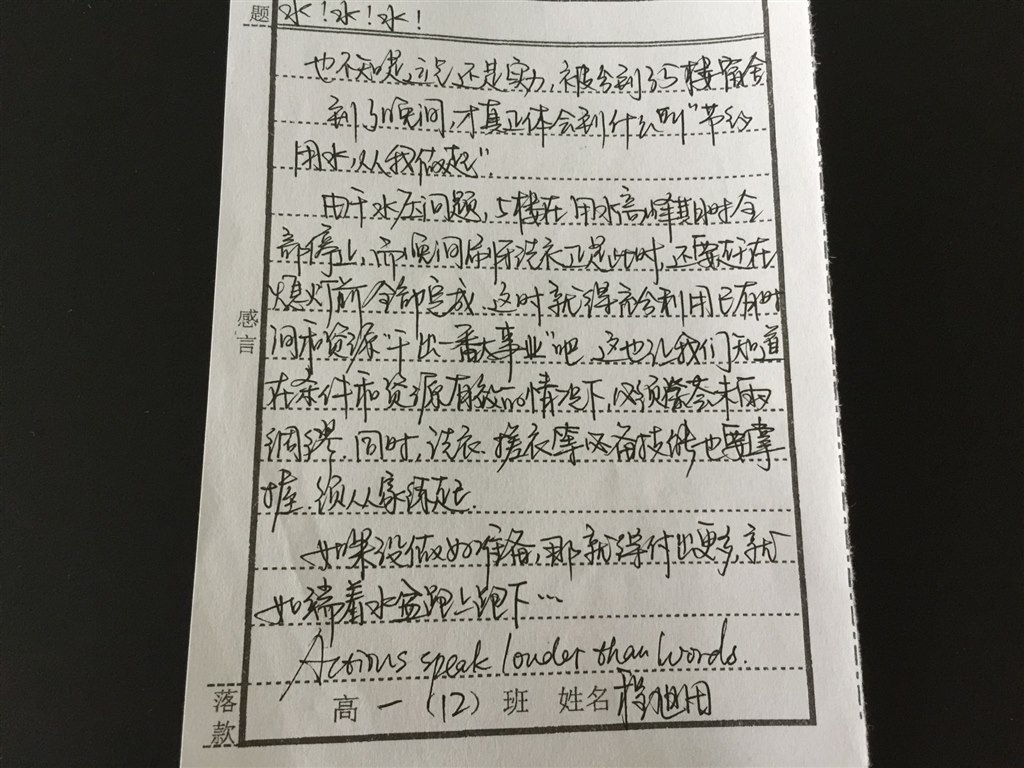 题 水!水!水!
也不知是运气还是实力,被分到了5楼宿舍
到了晚间,才真正体会到什么叫"节约
用水,从我做起"
由于水压问题,5楼在用水高峰期时全
部停止,而晚间刷牙洗衣正是此时,还要赶在
熄灯前全部完成,这时就得充分利用已有时
间和资源"干出一番大事业"吧,这也让我们知道
在条件和资源有效的情况下,必须学会未雨
绸缪.同时,洗衣.搓衣等必备技能也要掌
握.须从家练起.
感言
如果没做好准备,那就得付出更多,就
如端着水盆跑上跑下…
Actions speak louder than words.
落款 高一(12)班 姓名程